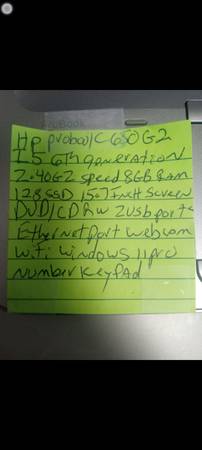 HP probook 650 G2
I5 6th generation
2.40GZ speed 8GB Ram
128SSD 15.7 inch Screen
DVD/CD RW 2 usb ports
Ethernet port webcam
wifi windows 11 pro
Number Keypad